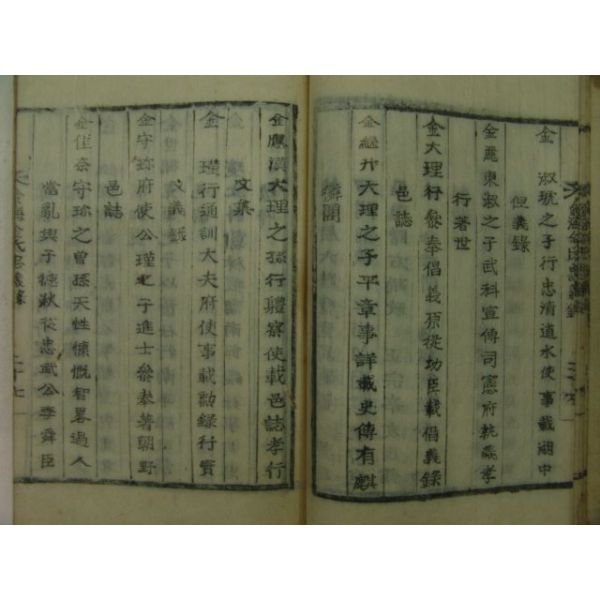 金 淑琥之子行忠清道水使事載湖中
但義錄
金 東淑之子武科宣傳司憲府執義孝
行著世
金大理行參奉倡義原從功臣載倡義錄
邑誌
金繼升大理之子平章事詳載史傳有麒
麟閣
金應漢大理之孫行體察使載邑誌孝行
文集
金 瑾行通訓大夫府使事載勳錄行實
文義錄
金守珎府使公瑾之子進士參奉著朝野
邑誌
金 奈守珎之曾孫天性慷慨智畧過人
當亂與子德秋從忠武公李舜臣